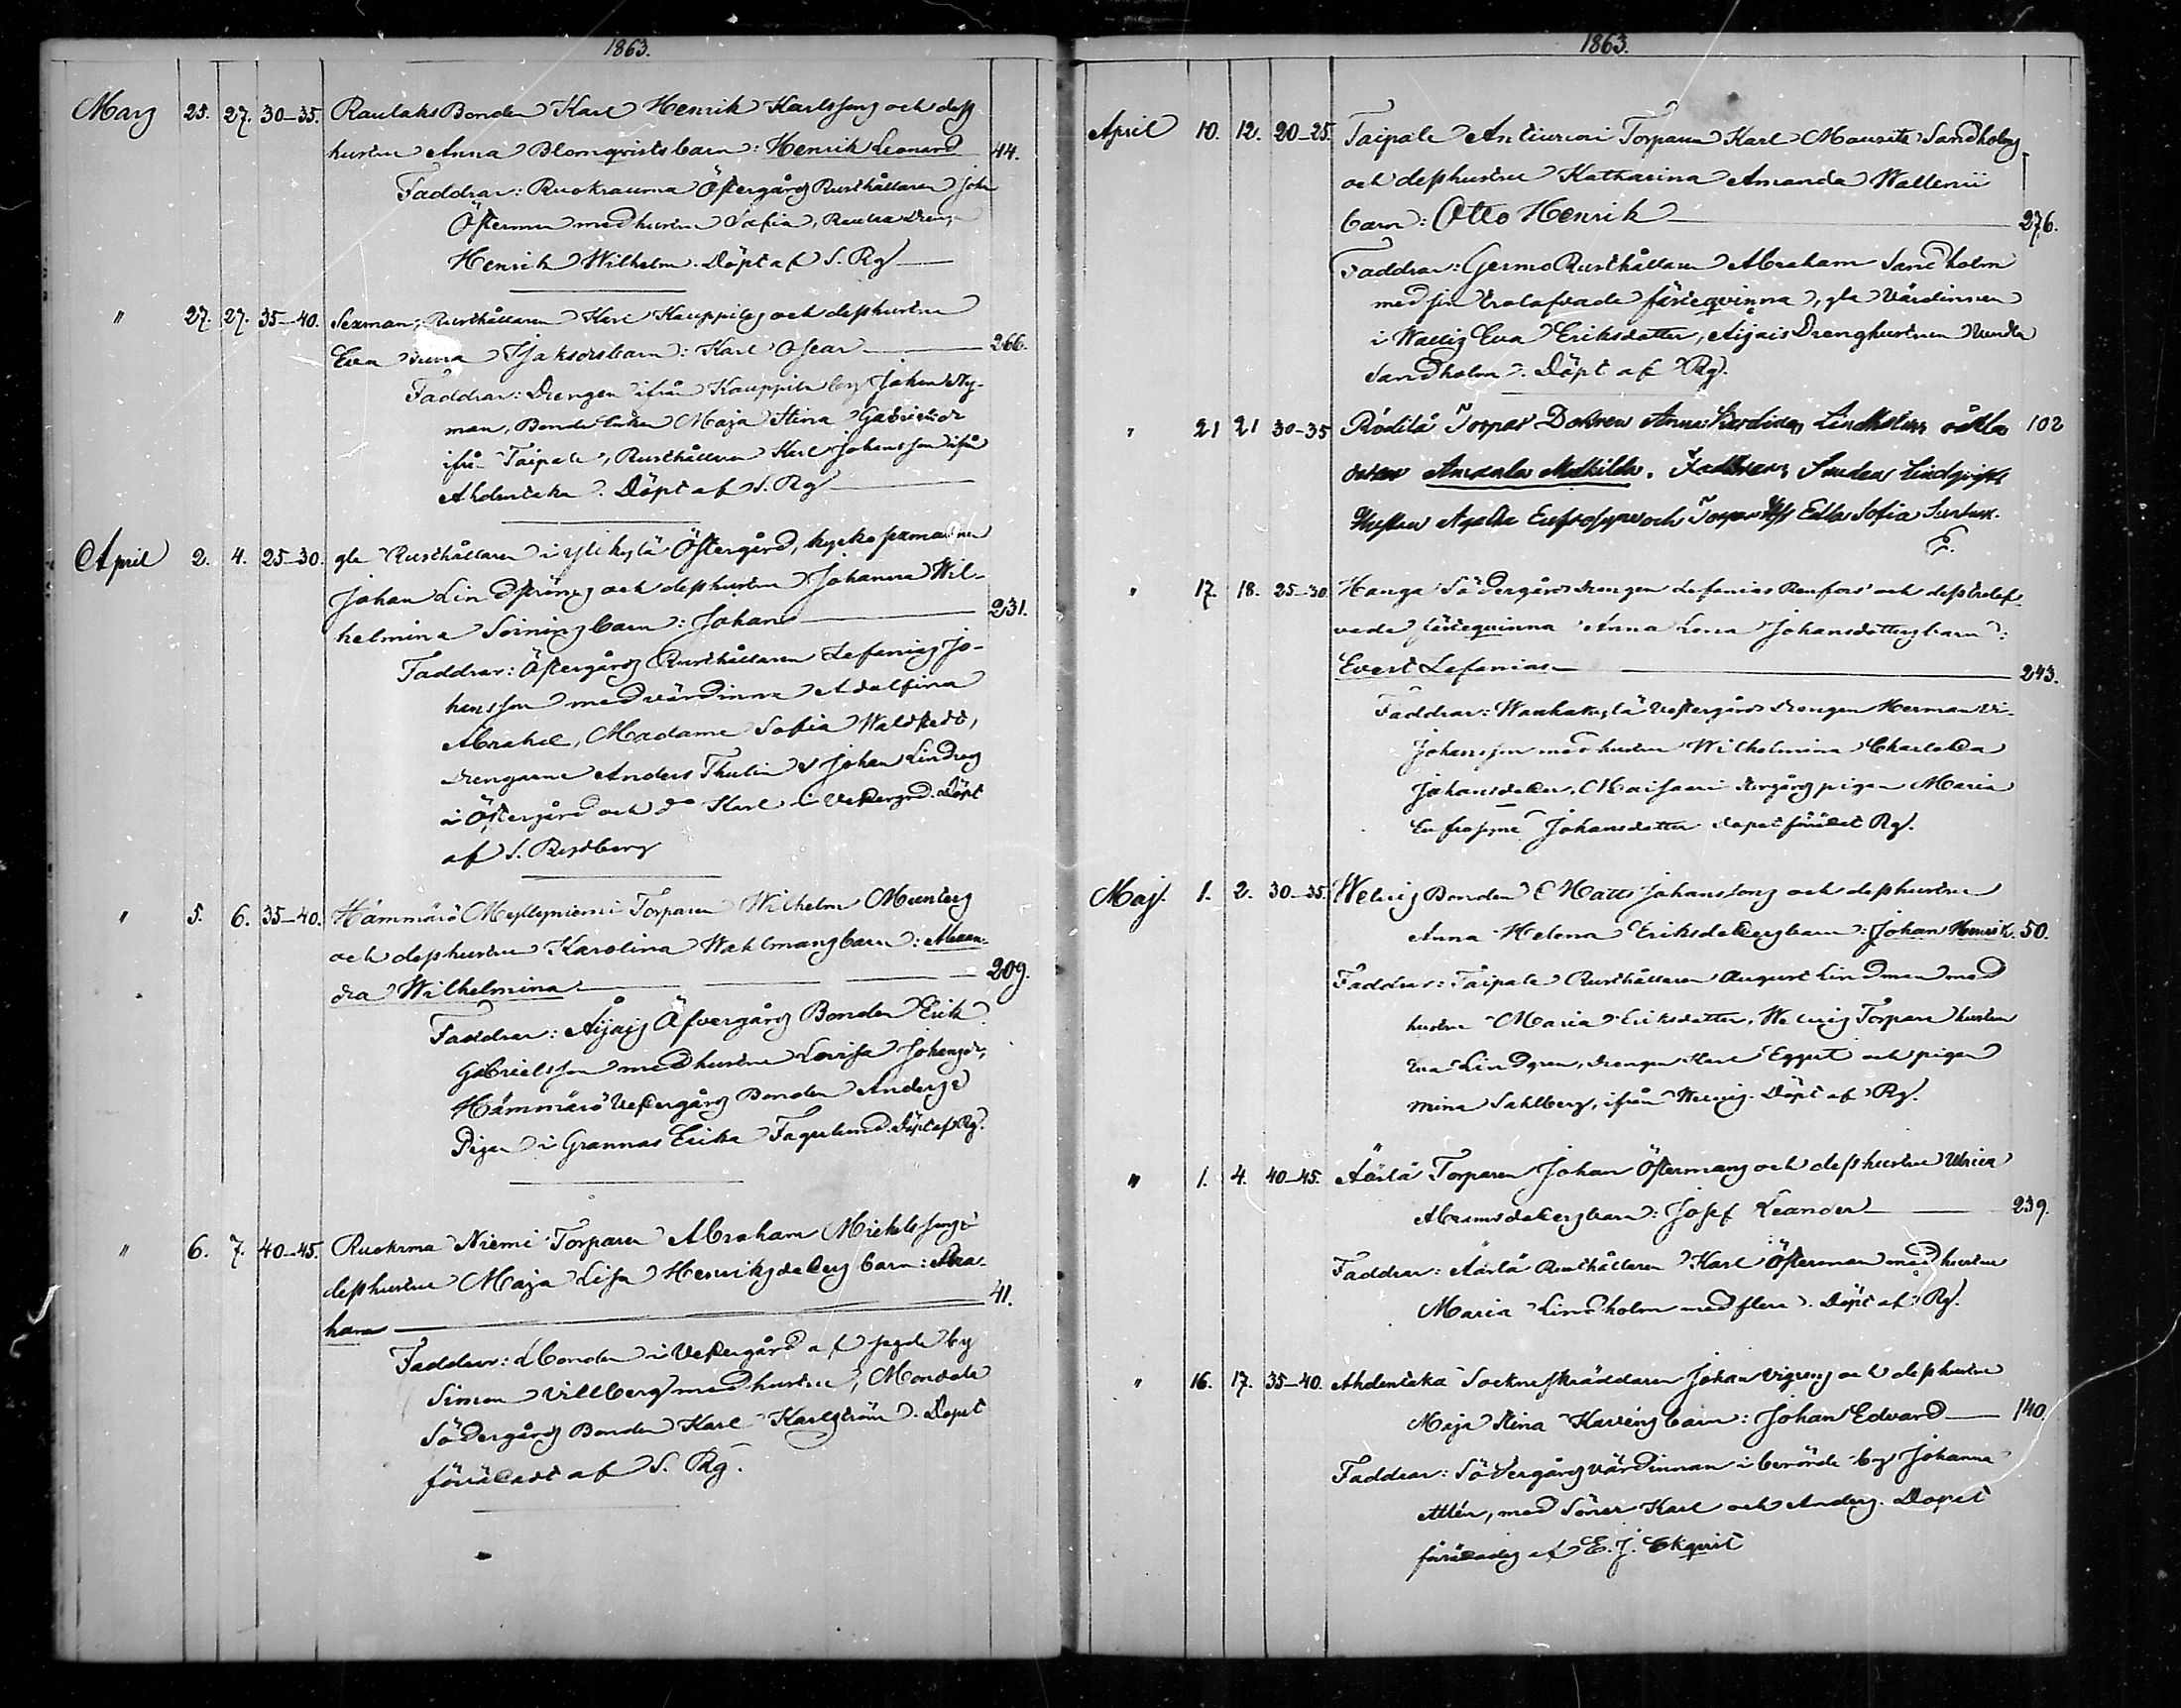 1863.
Mars 25. 27. 30–35. Raulaks Bonden Karl Henrik Karlssons och dess
hustru Anna Blomqvists barn: Henrik Leonard 44.
Faddrar: Ruokrauma Östergårds Rusthållaren Joh
Österman med hustru Sofia,
Henrik Wilhelm. Döpt af S. Rg
" 27. 27. 35–40. Sexman, Rusthållaren Karl Kauppilas och dess hustru
Eva barn: Karl Oscar 266.
Faddrar: Drengen ifrån Kauppila by Johan Ny-
man, Maja Stina Gabrielsdr
ifrån Taipale, Rusthållaren Karl Johansson ifrån
Ahdentaka. Döpt af S. Rg
April 2. 4. 25–30. gla Rusthållaren i Ylikylä Östergård, kyrko sexmannen
Johan Lindströms och dess hustru Johanna Wil-
helmina barn: Johan 231.
Faddrar: Östergårds Rusthållaren Stefanus Jo-
hansson med värdinna Adolfina
Abrahe, Madame Sofia Waldstedt,
drengarne Anders Thulin & Johan
i Östergård och do Karl i Vestergrd. Döpt
af S. Rydberg
" 5. 6. 35–40. Hämmärö Myllyniemi Torparen Wilhelm
och dess hustru Karolina Wahlmans barn: Alexan-
dra Wilhelmina 209.
Faddrar: Äijäis Öfvergårds Bonden Erik
Gabrielsson med hustru Lovisa Johansdr,
Hämmärö Vestergårds Bonden Anders &
Pigan i Grannas Erika Fagerlund. Döpt af Rg.
" 6. 7. 40–45. Ruokrma Niemi Torparen Abraham Michelssons &
dess hustru Maja Lisa Henriksdotters barn: Abra-
ham 41.
Faddrar: Bonden i Vestergård af sagde by
Simon Villberg med hustru, Monnola
Södergårds Bonden Karl Karlström. Döpet
förrättadt af S. Rg.
1863.
April 10. 12. 20–25. Taipale Torparen Karl Mauritz Sandholms
och dess hustru Katharina Amanda Wallenii
barn: Otto Henrik 276.
Faddrar: Germo Rusthållaren Abraham Sandholm
med sin trolofvade fästeqvinna, gla Värdinnan
i Wellis Eva Eriksdotter, Äijäis Drenghustrun
Sandholm. Döpt af Rg.
" 21 21 30–35 Rödilä Torpar Dottren Lindholms oäkta 102
dotter Amanda Mathilda. Faddrar: Lindqvists
Hustru Agatha Eufrosyne och Edla Sofia
E.
" 17. 18. 25–30 Hanga Södergårds drengen Stefanus Renfors och dess trolof-
vade fästeqvinna Anna Lovisa Johansdotters barn:
Evert Stefanus 243.
Faddrar: Wanhakylä Vestergårds drengen Herman
Johansson med hustru Wilhelmina Charlotta
Johansdotter, pigan Maria
Eufrosyne Johansdotter döpet förrättat Rg.
Maj. 1. 2. 30–35. Wellis Bonden Matts Johanssons och dess hustru
Anna Helena Eriksdotters barn: Johan Henrik. 50.
Faddrar: Taipale Rusthållaren August Lindman med
hustru Maria Eriksdotter, Wellis Torpare hustrun
Eva Lindgren, drengen Karl Eggert och pigan
Mina Sahlberg, ifrån Wellis. Döpt af Rg.
" 1. 4. 40–45. Äärlä Torparen Johan Östermans och dess hustru Ulrica
Abramsdotters barn: Josef Leander 239.
Faddrar: Äärlä Rusthållaren Karl Österman med hustru
Maria Lindholm med flera. Döpt af Rg.
" 16. 17. 35–40. Ahdentaka Sockne skräddaren Johan Vigrens och dess hustru
Maja Stina barn: Johan Edvard 140.
Faddrar: Södergårds värdinnan i berörde by Johanna
Attlén, med Söner Karl och Anders. Dopet
förrättades af E. J. Ekqvist